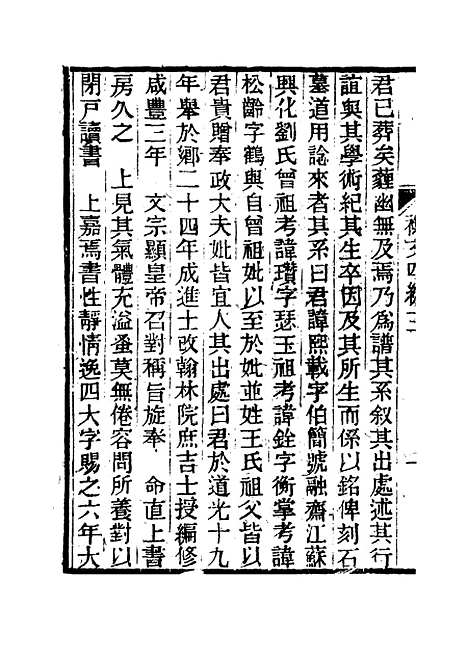 君已葬矣薶幽無及焉乃爲譜其系叙其出處述其行
誼與其學術紀其生卒因及其所生而係以銘俾刻石
墓道用諗來者其系曰君諱熙載字伯簡號融齋江蘇
興化劉氏曾祖考諱瓚字瑟玉祖考諱銓字衡掌考諱
松齡字鶴與自曾祖妣以至於妣並姓王氏祖父皆以
君貴贈奉政大夫妣皆宜人其出處曰君於道光十九
年舉於鄉二十四年成進士改翰林院庶吉士授編修
咸豐三年　文宗顯皇帝召對稱旨旋奉　命直上書
房久之　上見其氣體充溢蚤莫無倦容問所養對以
閉戸讀書　上嘉焉書性靜情逸四大字賜之六年大